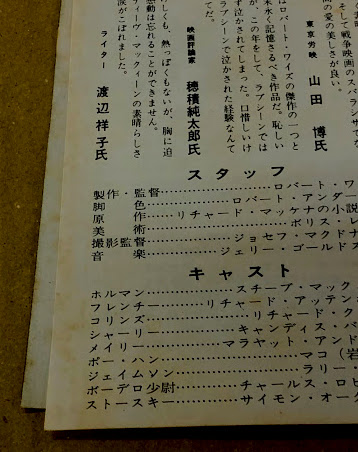 そして戦争映画のスペンサ
間の愛の美しさが良い。
東京労映 山田 博氏
はロバート・ワイズの傑作の一つと
末永く記憶さるべき作品だ。恥しい
が、この年をして、ラブシーンでは
ず泣かされてしまった。口惜しいけ
ラブシーンで泣かされた経験なんて
てだ。
映画評論家 穂積純太郎氏
しくも、熱っぽくもないが、胸に迫
感動は忘れることができません。
ティーヴ・マックィーンの素晴らしさ
涙がこぼれました。
ライター 渡辺祥子氏
スタッフ
製作・監督……ロバート・ワ
脚色……ロバート・アンダー
原作……リチャード・マッケナの小説
美術……ボリス・レ
撮影監督……ジョセフ・マクドナ
音楽……ジェリー・ゴールドス
キャスト
ホルマン……スチーブ・マック
フレンチー……リチャード・アッテン
コリンズ……リチャード・ク
シャーリー……キャンディス・バ
メイリー……マラヤット・アンド
ポー・ハン……マコ（岩
ジェイムソン……ラリー・
ボーデロ少尉……チャールス・ロビ
ストースキー……サイモン・オーク